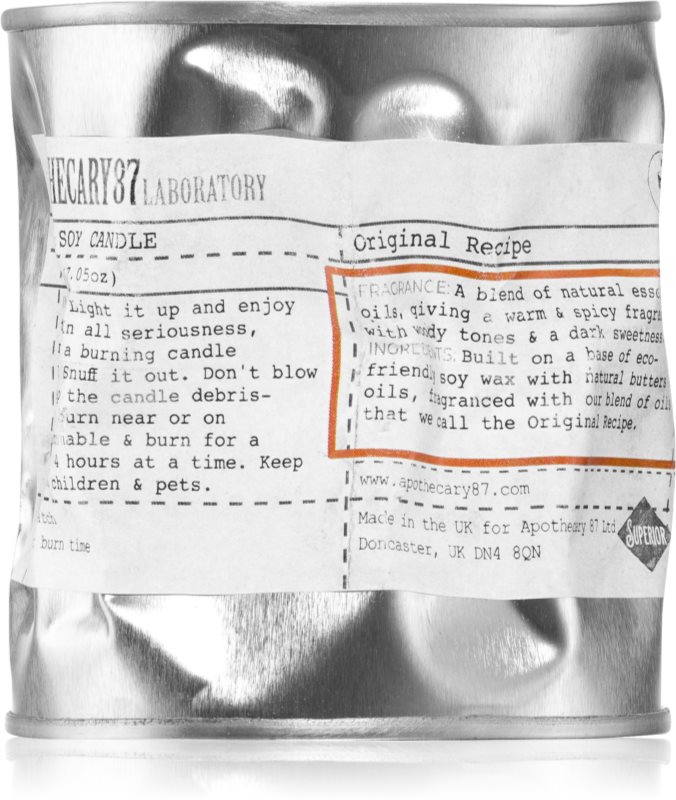 HECARY87 LABORATORY
SOY CANDLE
7.05oz)
Light it up and enjoy
in all seriousness,
a burning candle
Snuff it out. Don't blow
the candle debris-
urn near or on
able & burn for a
4 hours at a time. Keep
children & pets.
burn time
Original Recipe
FRAGRANCE: A blend of natural esse
oils, giving a warm & spicy fragra
with woody tones & a dark sweetness.
INGREDIENTS: Built on a base of eco-
friendly soy wax with natural butters
oils, fragranced with our blend of oils
that we call the Original Recipe.
www.apothecary87.com
Made in the UK for Apothecary 87 Ltd
Doncaster, UK DN4 8QN
SUPERIOR